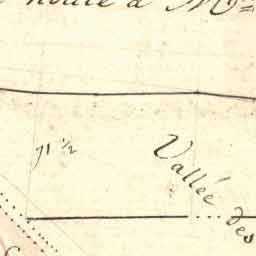 route à M
71 ½
Vallée des